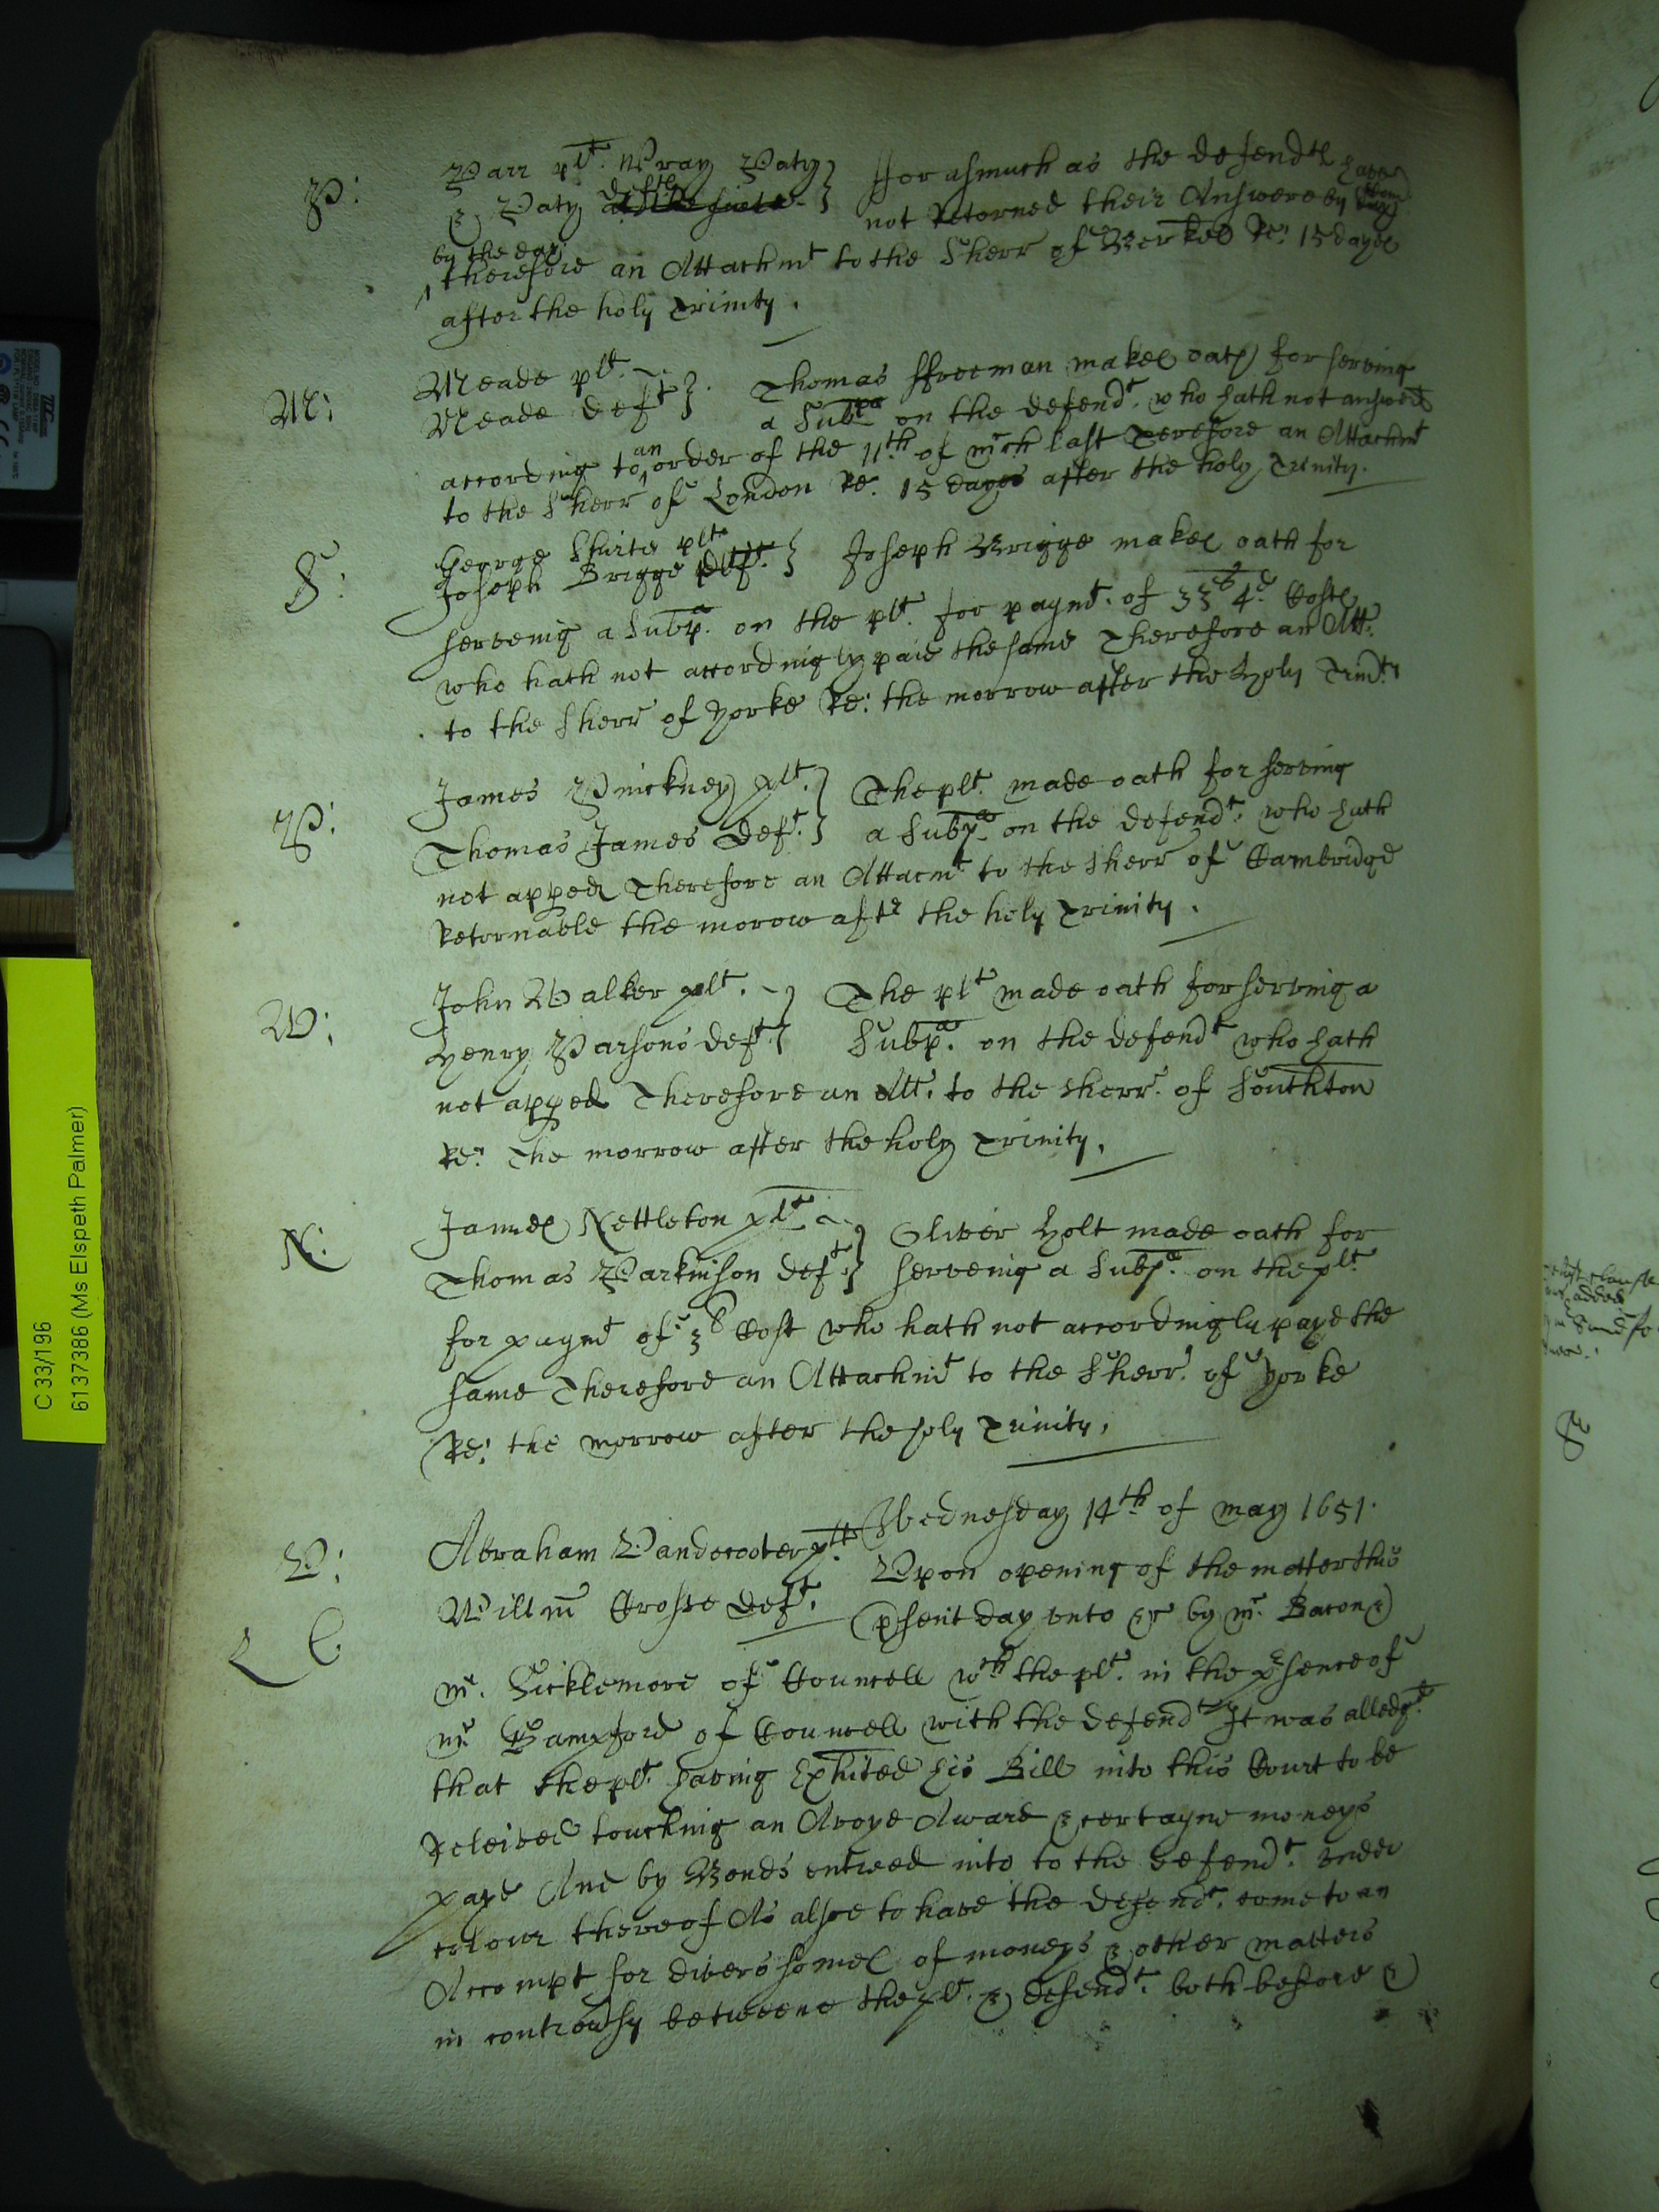 P:
Parr plt. Wray Paty } Forasmuch as the defendts have
& Paty defts } not Retorned their Answere by Com
by the day
therefore an Attachmt to the Sherr of Berkes Re: 15 dayes
after the holy Trinity.
M:
Meade plt.
Meade deft } Thomas ffreeman makes oath for serving
a Subpa on the defendt. who hath not answerd
according to an order of the 11th of mrch last Therefore an Attachmt
to the Sherr of London Re. 15 dayes after the holy Trinity.
S:
George Skirter plt
Joseph Brigge deft. } Joseph Brigge makes oath for
serveing a Subpa. on the plt. for paymt. of 33s 4d Costs
who hath not accordingly paid the same Therefore an Att.
to the Sherr of Yorke Re: the morrow after the Holy Trinity
P:
James Pinckney plt. } The plt. made oath for serving
Thomas James Deft. } a Subpa on the defendt. who hath
not apped Therefore an Attacmt to the Sherr of Cambridge
Retornable the morow aftr the holy Trinity.
W:
John Walker plt. } The plt made oath for serving a
Henry Parsons deft. } Subpa. on the defendt who hath
not apped Therefore an Att. to the Sherr. of Southton
Re: The morrow after the holy Trinity.
N:
James Nettleton plt } Oliver Holt made oath for
Thomas Parkinson deft } serveing a Subpa. on the plt
for paymt of 3l Cost who hath not accordingly payd the
same Therefore an Attachmt to the Sherr. of Yorke
Re: the morrow after the holy Trinity.
Wednesday 14th of may 1651.
V:
Abraham Vandecooter plt. Vpon opening of the matter this
Willm Crosse Deft. psent day vnto by mr. Bacon &
C.
mr. Sicklemore of Councell wth the plt. in the psence of
mr Bampford of Councell with the defendt It was alledgd
that the plt. having Exhited his Bill into this Court to be
Releived touching an Avoyd Award & certayne moneys
payd And by Bonds entred into to the defendt. vnder
colour thereof As alsoe to have the defendt. come to an
Accompt for divers somes of moneys & other matters
in controvsy betweene the plt. & defendt. both before &
C 33/196
61137386 (Ms Elspeth Palmer)
added